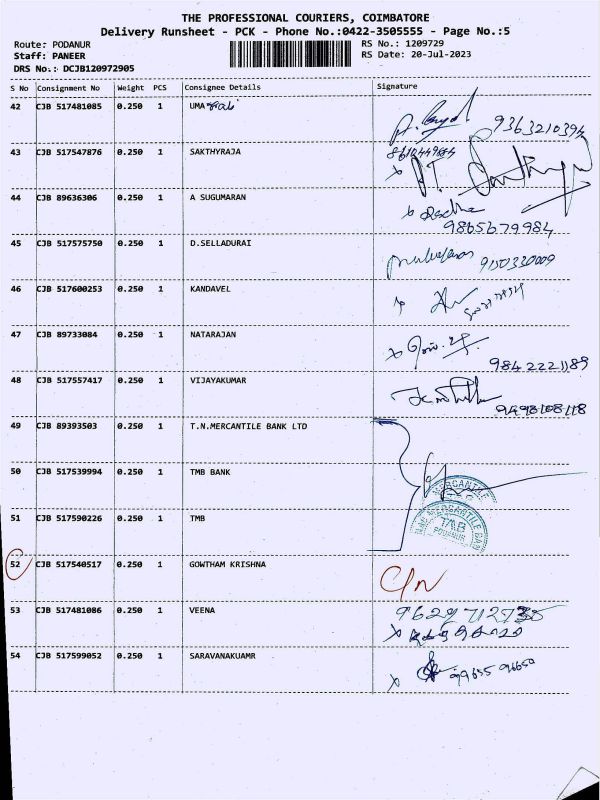 THE PROFESSIONAL COURIERS, COIMBATORE
Delivery Runsheet - PCK - Phone No.:0422-3505555 - Page No.:5
Route: PODANUR RS No.: 1209729
Staff: PANEER RS Date: 20-Jul-2023
DRS No.: DCJB120972905
S No Consignment No Weight PCS Consignee Details Signature
42 CJB 517481085 0.250 1 UMA
9363210394
43 CJB 517547876 0.250 1 SAKTHYRAJA
8610449684
44 CJB 89636306 0.250 1 A SUGUMARAN
x Radha
9865679984
45 CJB 517575750 0.250 1 D.SELLADURAI
9150330009
46 CJB 517600253 0.250 1 KANDAVEL
x
47 CJB 89733084 0.250 1 NATARAJAN
x
9842221189
48 CJB 517557417 0.250 1 VIJAYAKUMAR
9498108118
49 CJB 89393503 0.250 1 T.N.MERCANTILE BANK LTD
50 CJB 517539994 0.250 1 TMB BANK
MERCANTILE
51 CJB 517590226 0.250 1 TMB
MERCANTILE BANK
TMB
PODANUR
52 CJB 517540517 0.250 1 GOWTHAM KRISHNA
C/N
53 CJB 517481086 0.250 1 VEENA
x
54 CJB 517599052 0.250 1 SARAVANAKUAMR
x 99655 96650